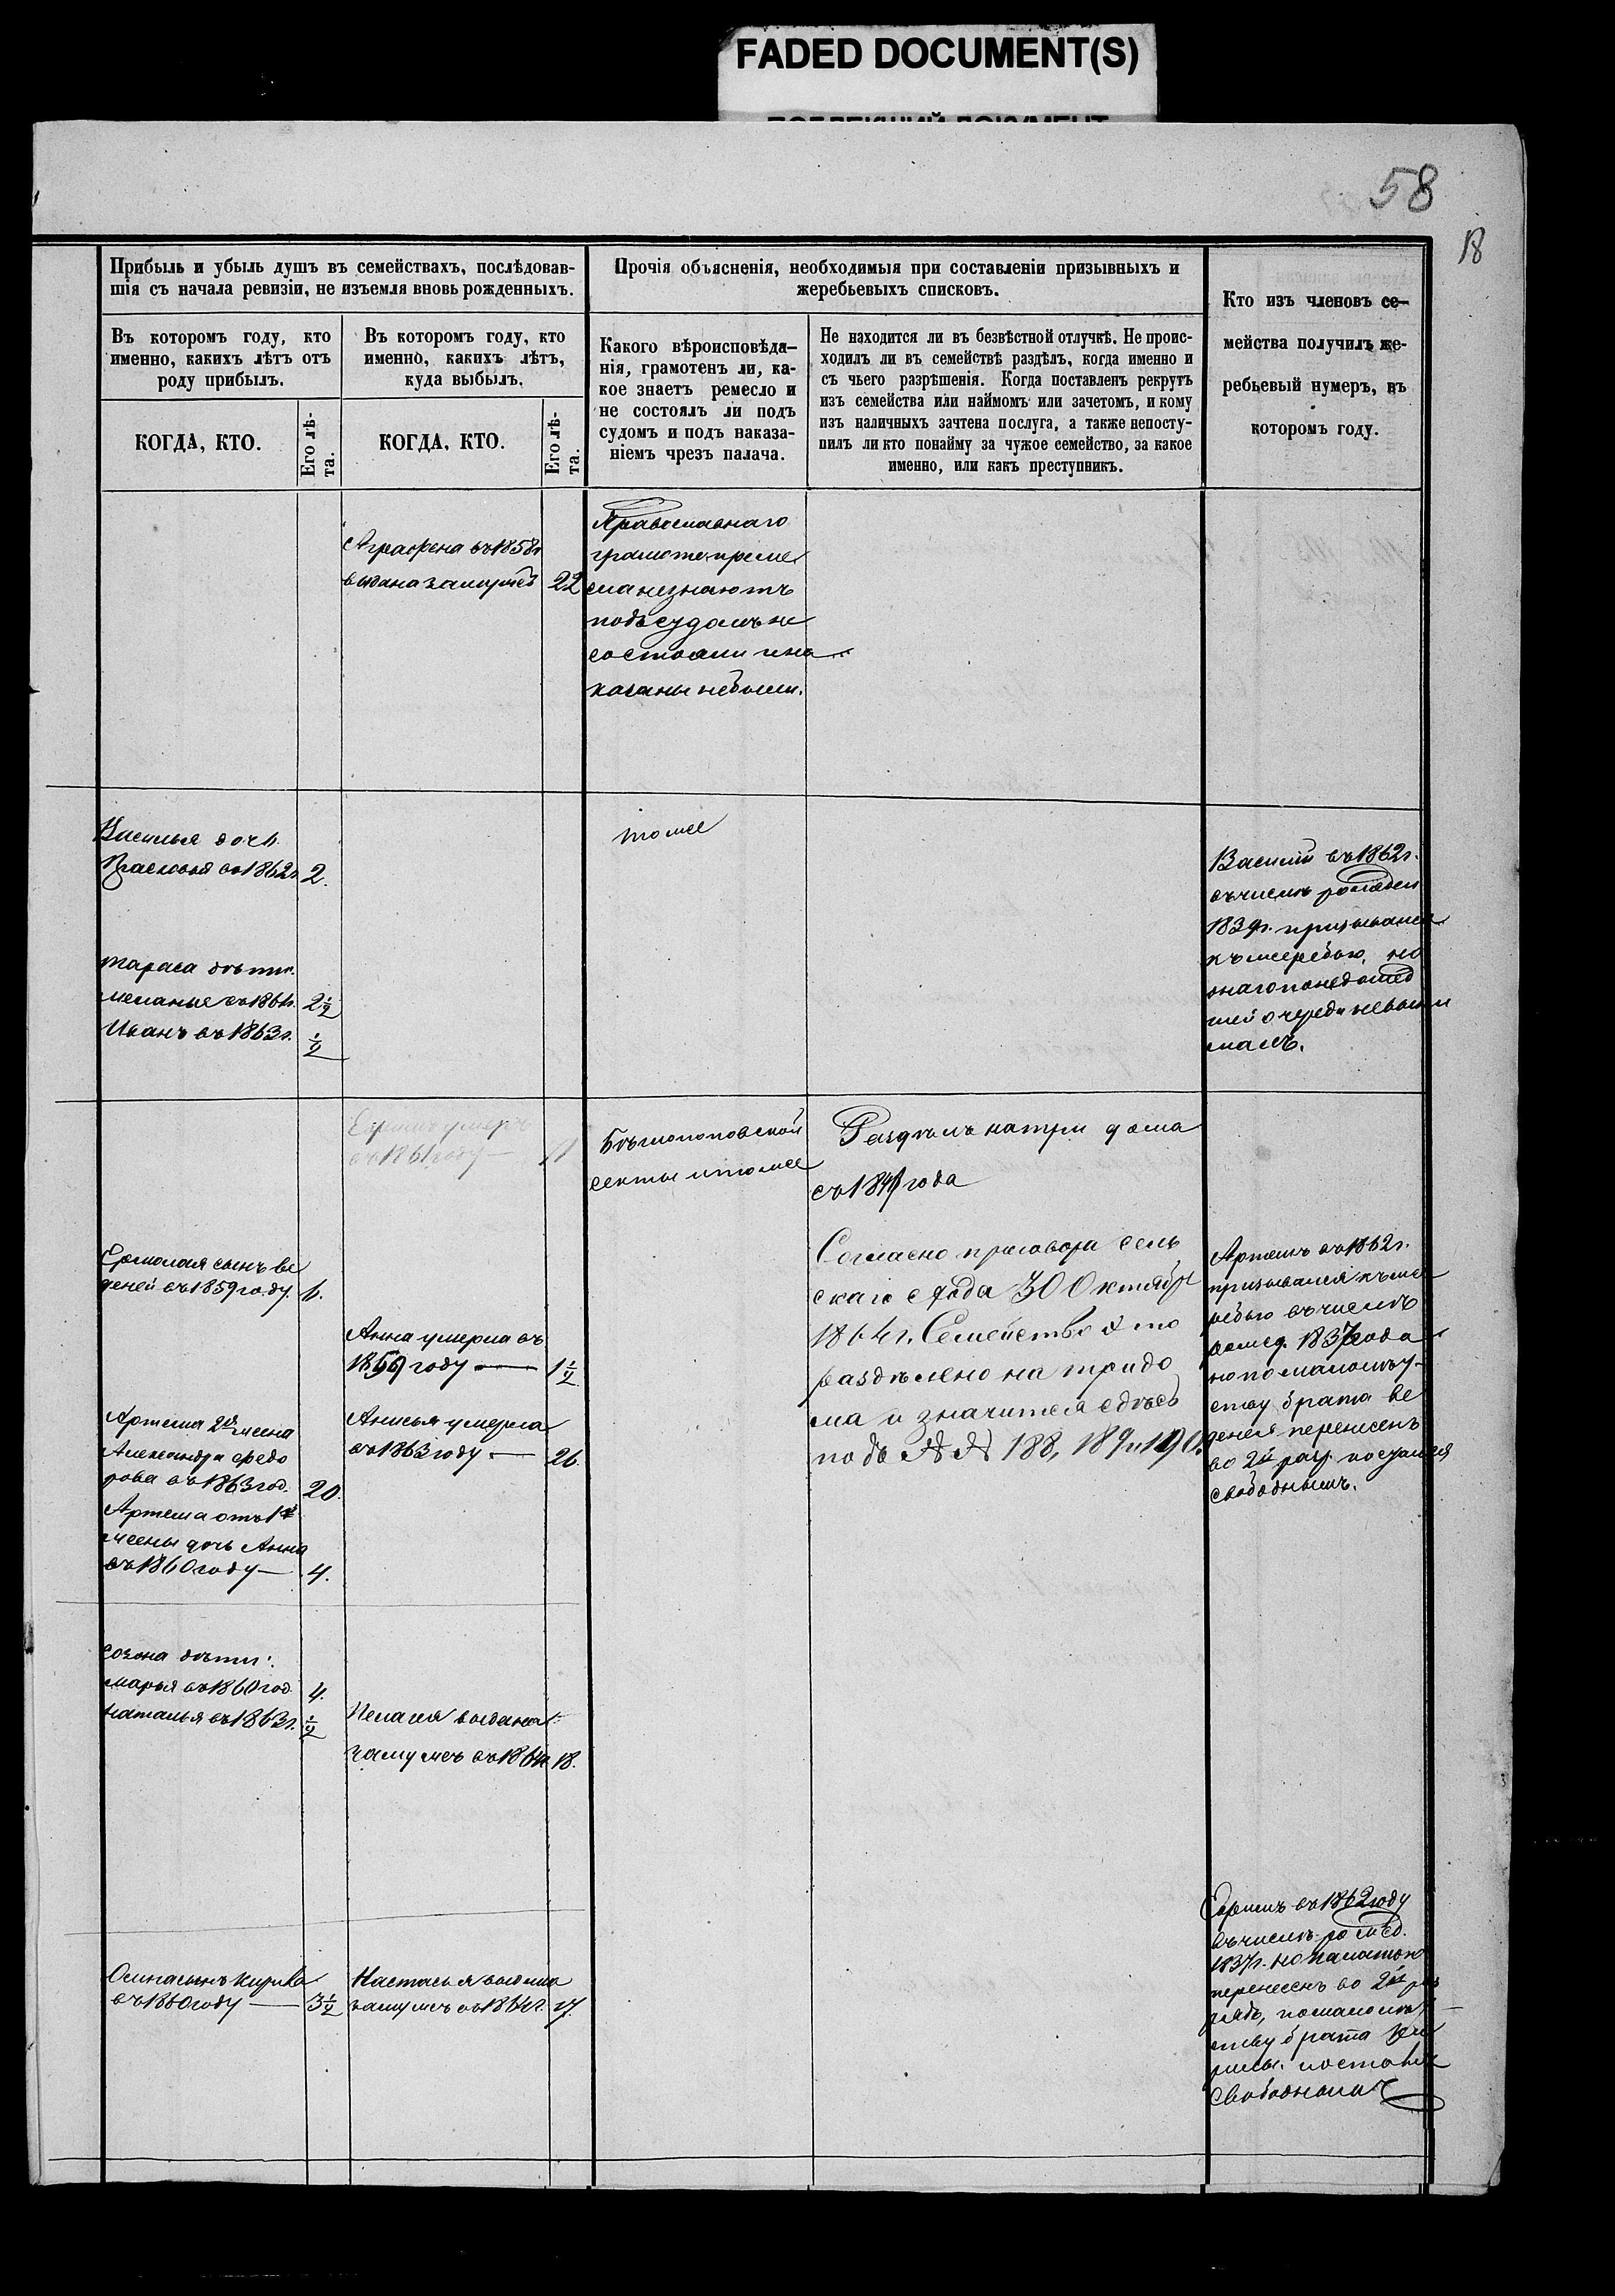 FADED DOCUMENT(S)
58
18
Прибыль и убыль душъ въ семействахъ, послѣдовав-
шія съ начала ревизіи, не изъемля вновь рожденныхъ.
Прочія объясненія, необходимыя при составленіи призывныхъ и
жеребьевыхъ списковъ.
Кто изъ членовъ се-
мейства получилъ же-
ребьевый нумеръ, въ
которомъ году.
Въ которомъ году, кто
именно, какихъ лѣтъ отъ
роду прибылъ.
Въ которомъ году, кто
именно, какихъ лѣтъ,
куда выбылъ.
Какого вѣроисповѣда-
нія, грамотенъ ли, ка-
кое знаетъ ремесло и
не состоялъ ли подъ
судомъ и подъ наказа-
ніемъ чрезъ палача.
Не находится ли въ безвѣстной отлучкѣ. Не проис-
ходилъ ли въ семействѣ раздѣлъ, когда именно и
съ чьего разрѣшенія. Когда поставленъ рекрутъ
изъ семейства или наймомъ или зачетомъ, и кому
изъ наличныхъ зачтена послуга, а также непосту-
пилъ ли кто понайму за чужое семейство, за какое
именно, или какъ преступникъ.
КОГДА, КТО.
Его лѣ-
та.
КОГДА, КТО.
Его лѣ-
та.
Аграфена въ 1858г
выдана замужъ 22
Православнаго
грамоте и реме
сла незнаютъ
подъ судомъ не
состояли и на
казаны небыли.
Василья дочь
Прасковья въ 1862г. 2.
тоже
Василій въ 1862г.
въ числѣ рожден
1839г. призывался
къ жеребью, но
онаго понедошед
шей очереди невыни
малъ.
Тараса дѣти.
меланья въ 1861г. 2½
Иванъ въ 1863г. ½
умеръ
въ 1861 году — 11
Безпоповской
секты и тоже
Раздѣлъ на три дома
съ 1848 года
Ермолая сынъ Ве
деней въ 1859 году.
Анна умерла въ
1859 году — 1½
Согласно приговора сель
скаго схода 30 Октября
1864г. Семейство это
раздѣлено на три до
ма и значится сдѣсь
подъ №№ 188, 189 и 190.
Артемъ въ 1862г.
призывался къ же
ребью въ числѣ
рожд. 1837 года
но по малолѣт
ству брата Ве
денея перенесенъ
во 2й разр. и остался
свободнымъ.
Артема 2я жена
Александра Федо
рова въ 1863 год. 20.
Артема отъ 1й
жены дочь Анна
въ 1860 году — 4.
Анисья умерла
въ 1863 году — 26
Созона дѣти:
марья въ 1860 год. 4.
наталья въ 1863г. ½
Пелагея выдана
замужъ въ 1864г. 18.
Осипа сынъ Кирила
въ 1860 году — 3½
Настасья выдана
замужъ въ 1864г. 17.
въ 1862 году
въ числѣ рожд.
1837г. но палатою
перенесенъ во 2й раз
рядъ, по малолѣт
ству брата
и остался
Свободнымъ